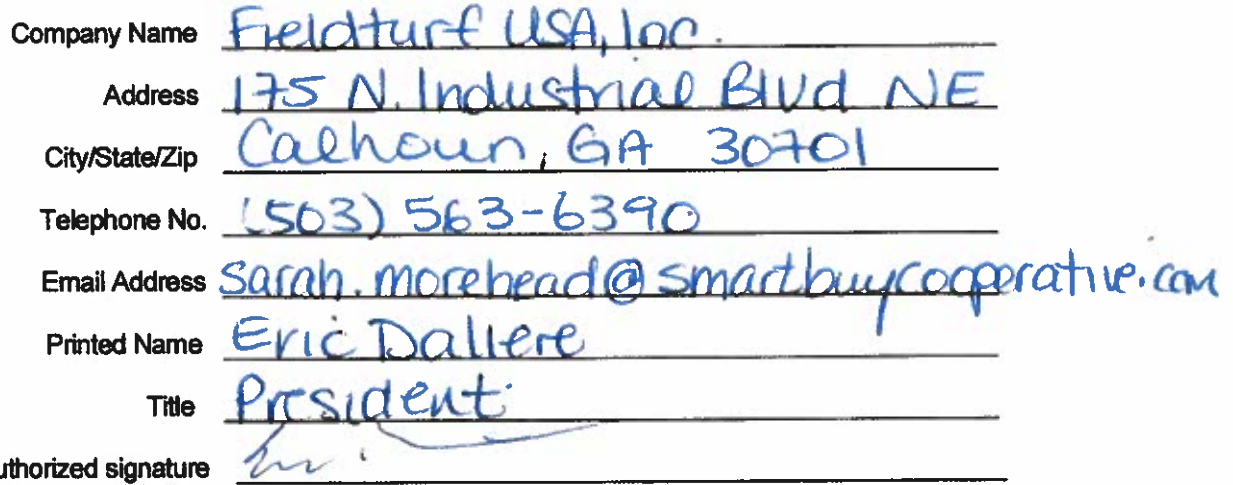 Company Name Fieldturf USA, Inc.
Address 175 N. Industrial Blvd NE
City/State/Zip Calhoun, GA 30701
Telephone No. (503) 563-6390
Email Address Sarah.morehead@smartbuycooperative.com
Printed Name Eric Daliere
Title President
uthorized signature